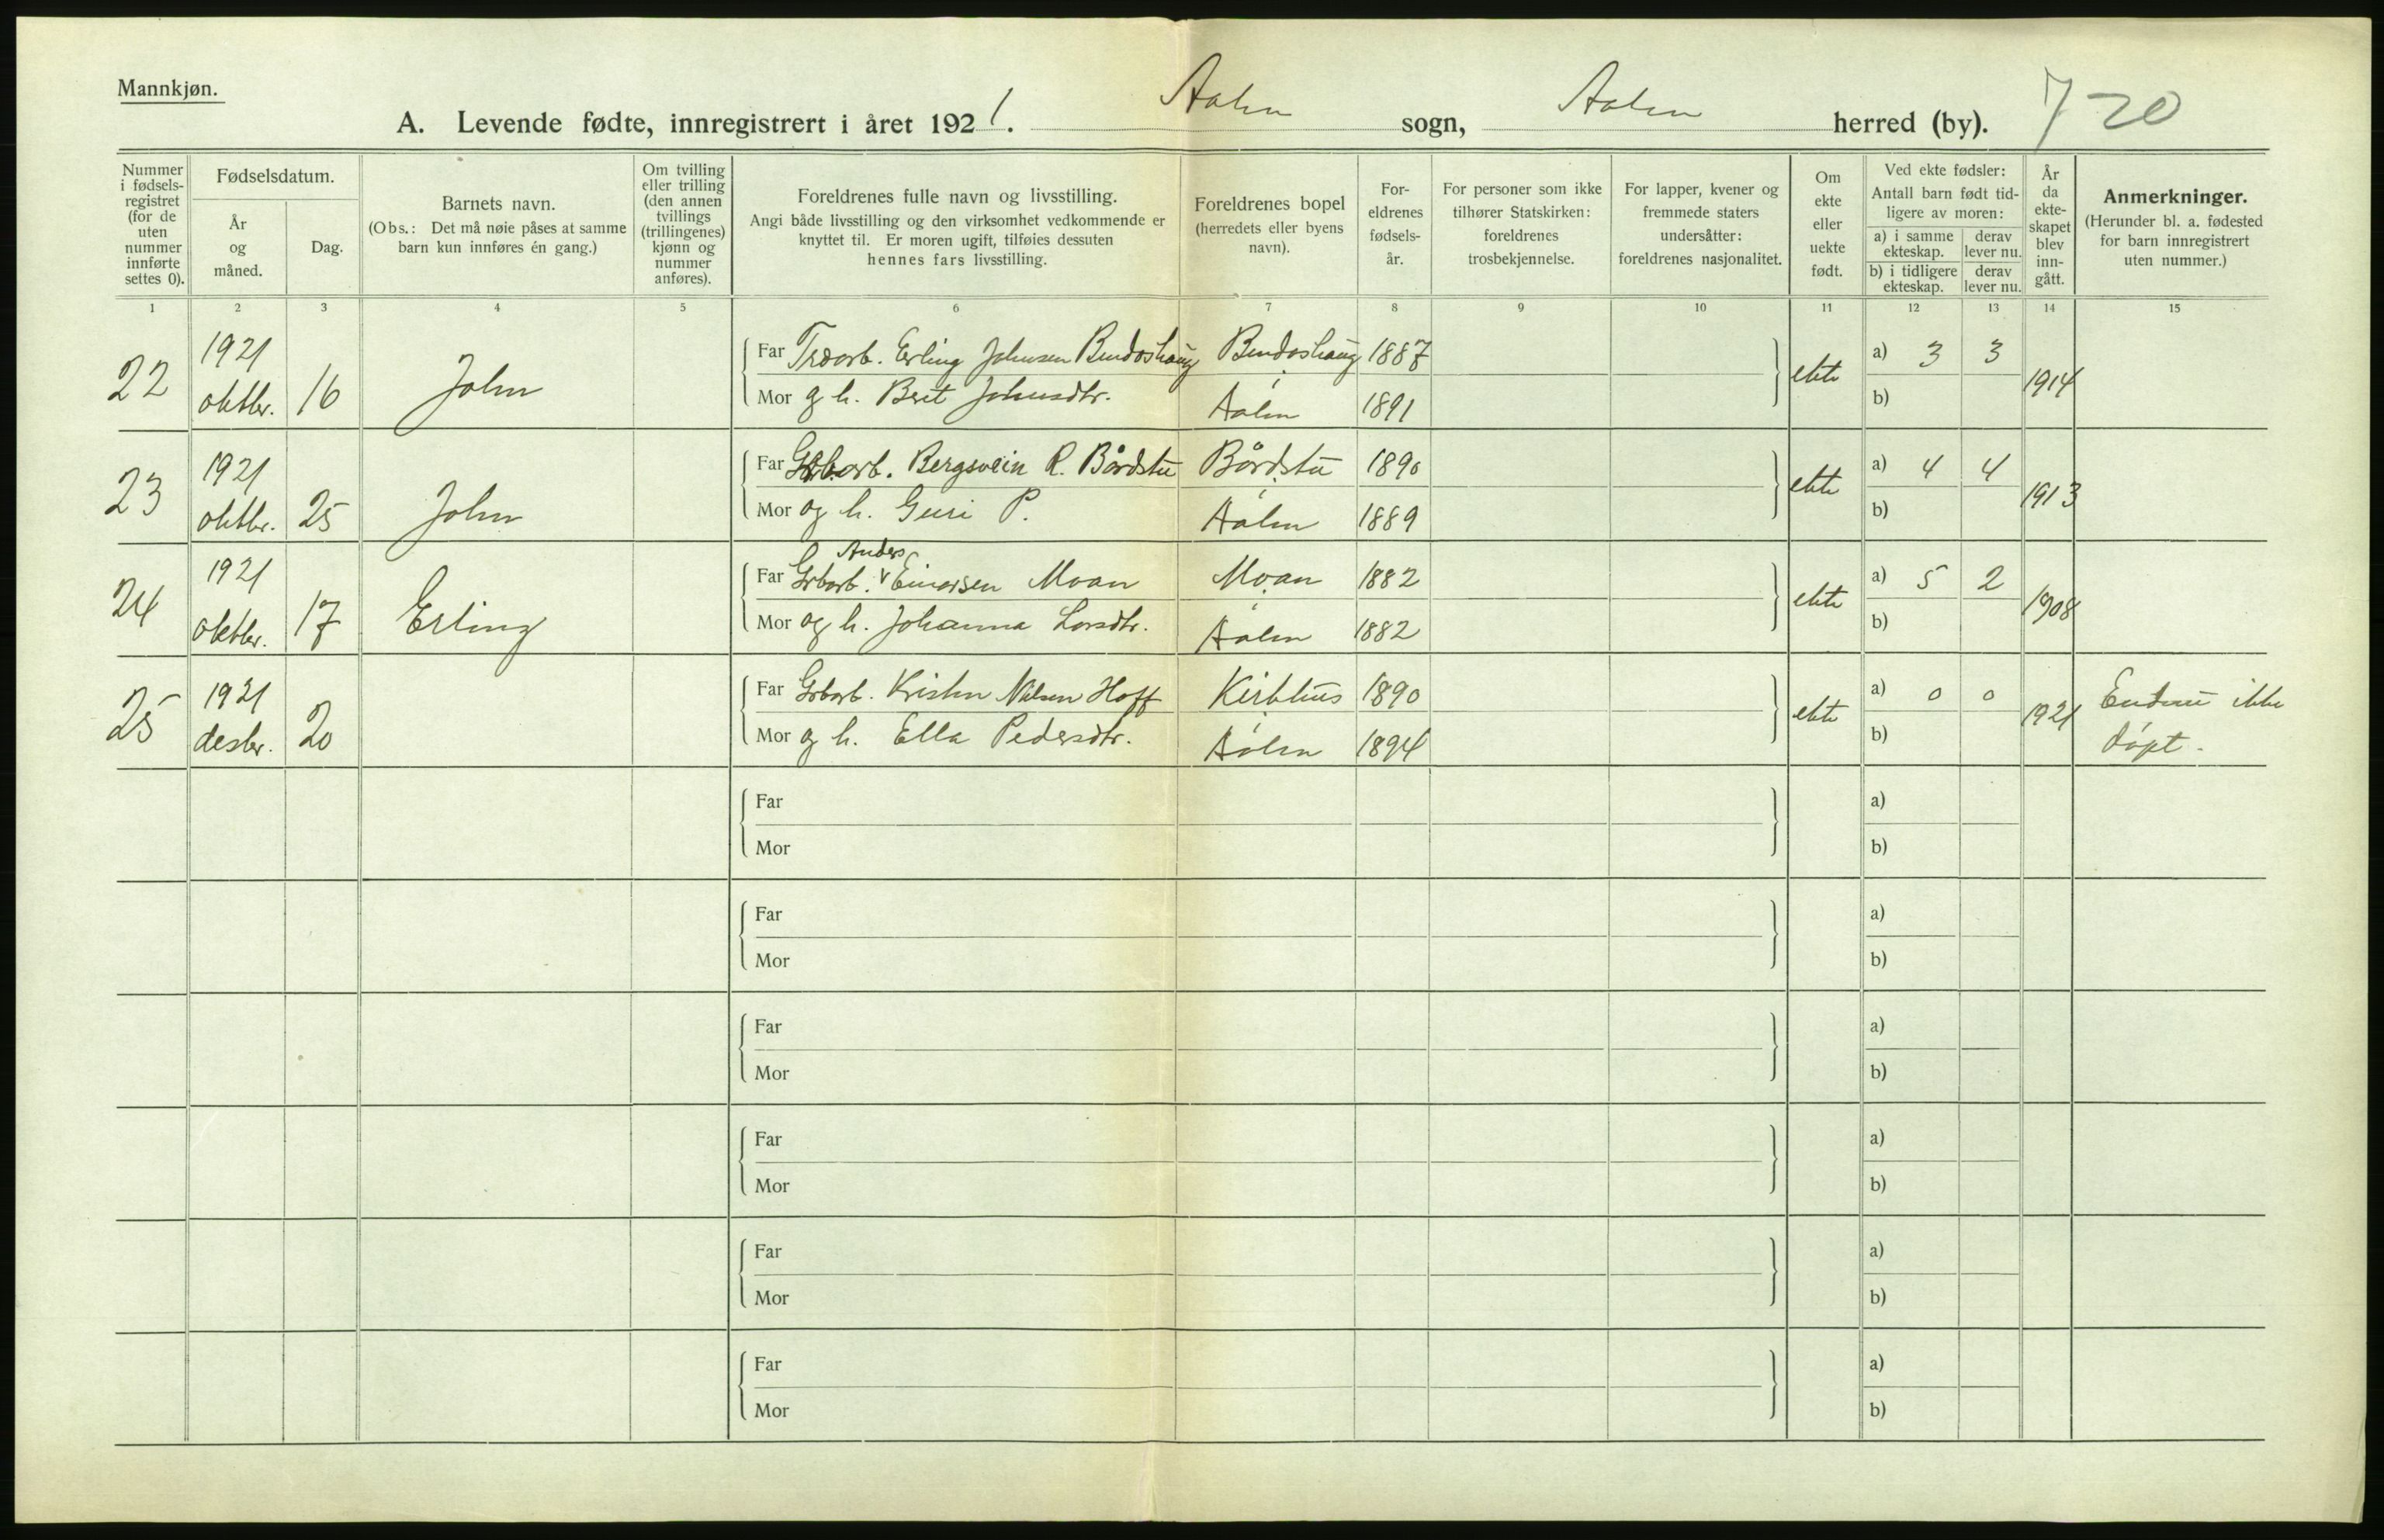 Mannkjøn.
A. Levende fødte, innregistrert i året 1921. Aalen sogn, Aalen herred (by). 720
Nummer i fødsels-registret (for de uten nummer innførte settes 0).
Fødselsdatum.
År og måned.
Dag.
Barnets navn.
(Obs.: Det må nøie påses at samme barn kun innføres én gang.)
Om tvilling eller trilling (den annen tvillings (trillingenes) kjønn og nummer anføres).
Foreldrenes fulle navn og livsstilling.
Angi både livsstilling og den virksomhet vedkommende er knyttet til. Er moren ugift, tilføies dessuten hennes fars livsstilling.
Foreldrenes bopel (herredets eller byens navn).
For-eldrenes fødsels-år.
For personer som ikke tilhører Statskirken: foreldrenes trosbekjennelse.
For lapper, kvener og fremmede staters undersåtter: foreldrenes nasjonalitet.
Om ekte eller uekte født.
Ved ekte fødsler:
Antall barn født tid-ligere av moren:
a) i samme ekteskap. derav lever nu.
b) i tidligere ekteskap. derav lever nu.
År da ekte-skapet blev inn-gått.
Anmerkninger.
(Herunder bl. a. fødested for barn innregistrert uten nummer.)
1 2 3 4 5 6 7 8 9 10 11 12 13 14 15
22 1921 oktbr. 16 John
Far Erling Johnsen Bendoshaug Bendoshaug 1887
Mor og h. Berit Johnsdtr. Aalen 1891
ekte a) 3 3 b) 1914
23 1921 oktbr. 25 John
Far Grbarb. Bergsvein R. Bårdstu Bårdstu 1890
Mor og h. Guri P. Aalen 1889
ekte a) 4 4 b) 1913
24 1921 oktbr. 17 Erling
Anders
Far Grbarb. v Einarsen Moan Moan 1882
Mor og h. Johanna Larsdtr. Aalen 1882
ekte a) 5 2 b) 1908
25 1921 desbr. 20
Far Grbarb. Kristen Nilsen Hoff Kirkhus 1890
Mor og h. Ella Pedersdtr. Aalen 1894
ekte a) 0 0 b) 1921 Endnu ikke døpt.
Far a)
Mor b)
Far a)
Mor b)
Far a)
Mor b)
Far a)
Mor b)
Far a)
Mor b)
Far a)
Mor b)